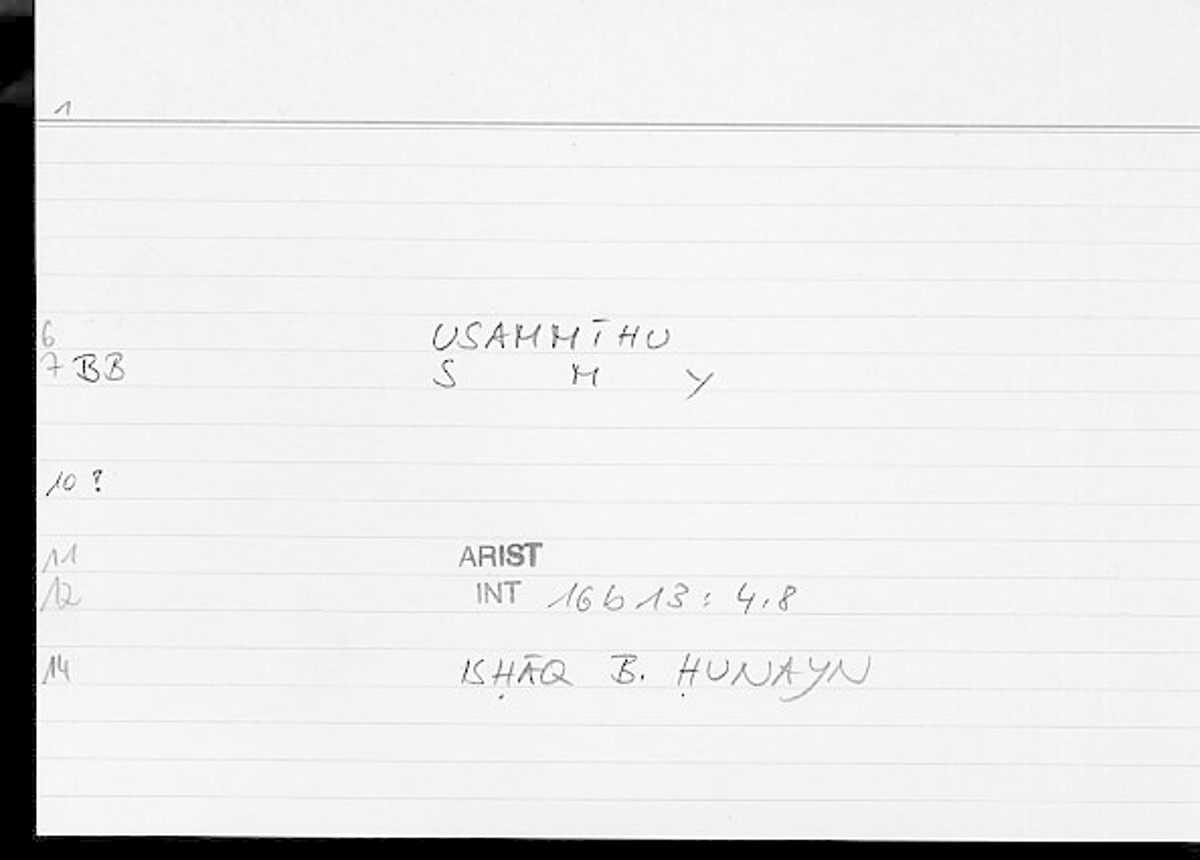 1
6 USAMMĪHU
7 BB S M Y
10 ?
11 ARIST
12 INT 16b13 : 4,8
14 ISḤĀQ B. ḤUNAYN